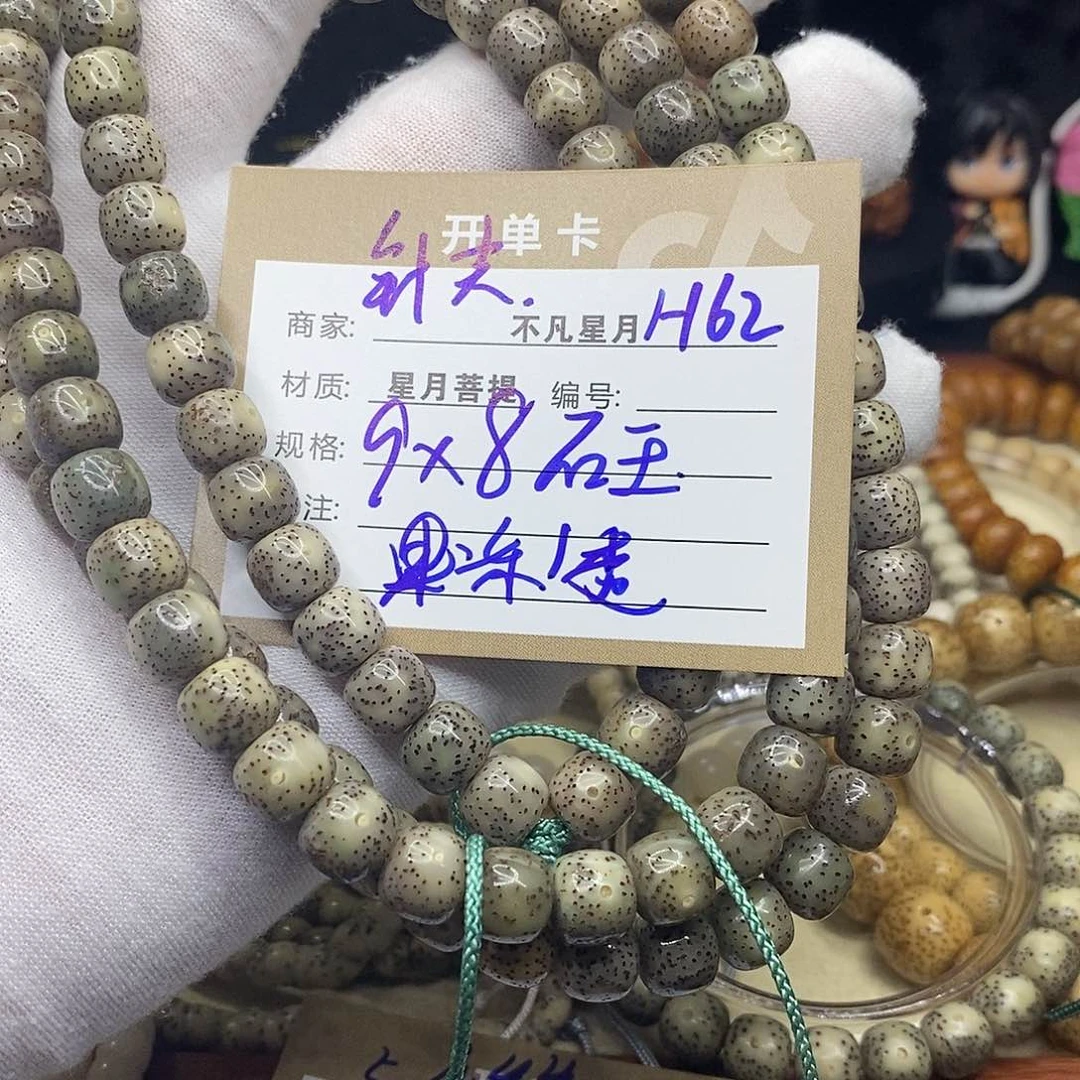 开单卡
针尖.
商家: 不凡星月 H62
材质: 星月菩提 编号:
规格: 9×8 石王.
注:
果冻